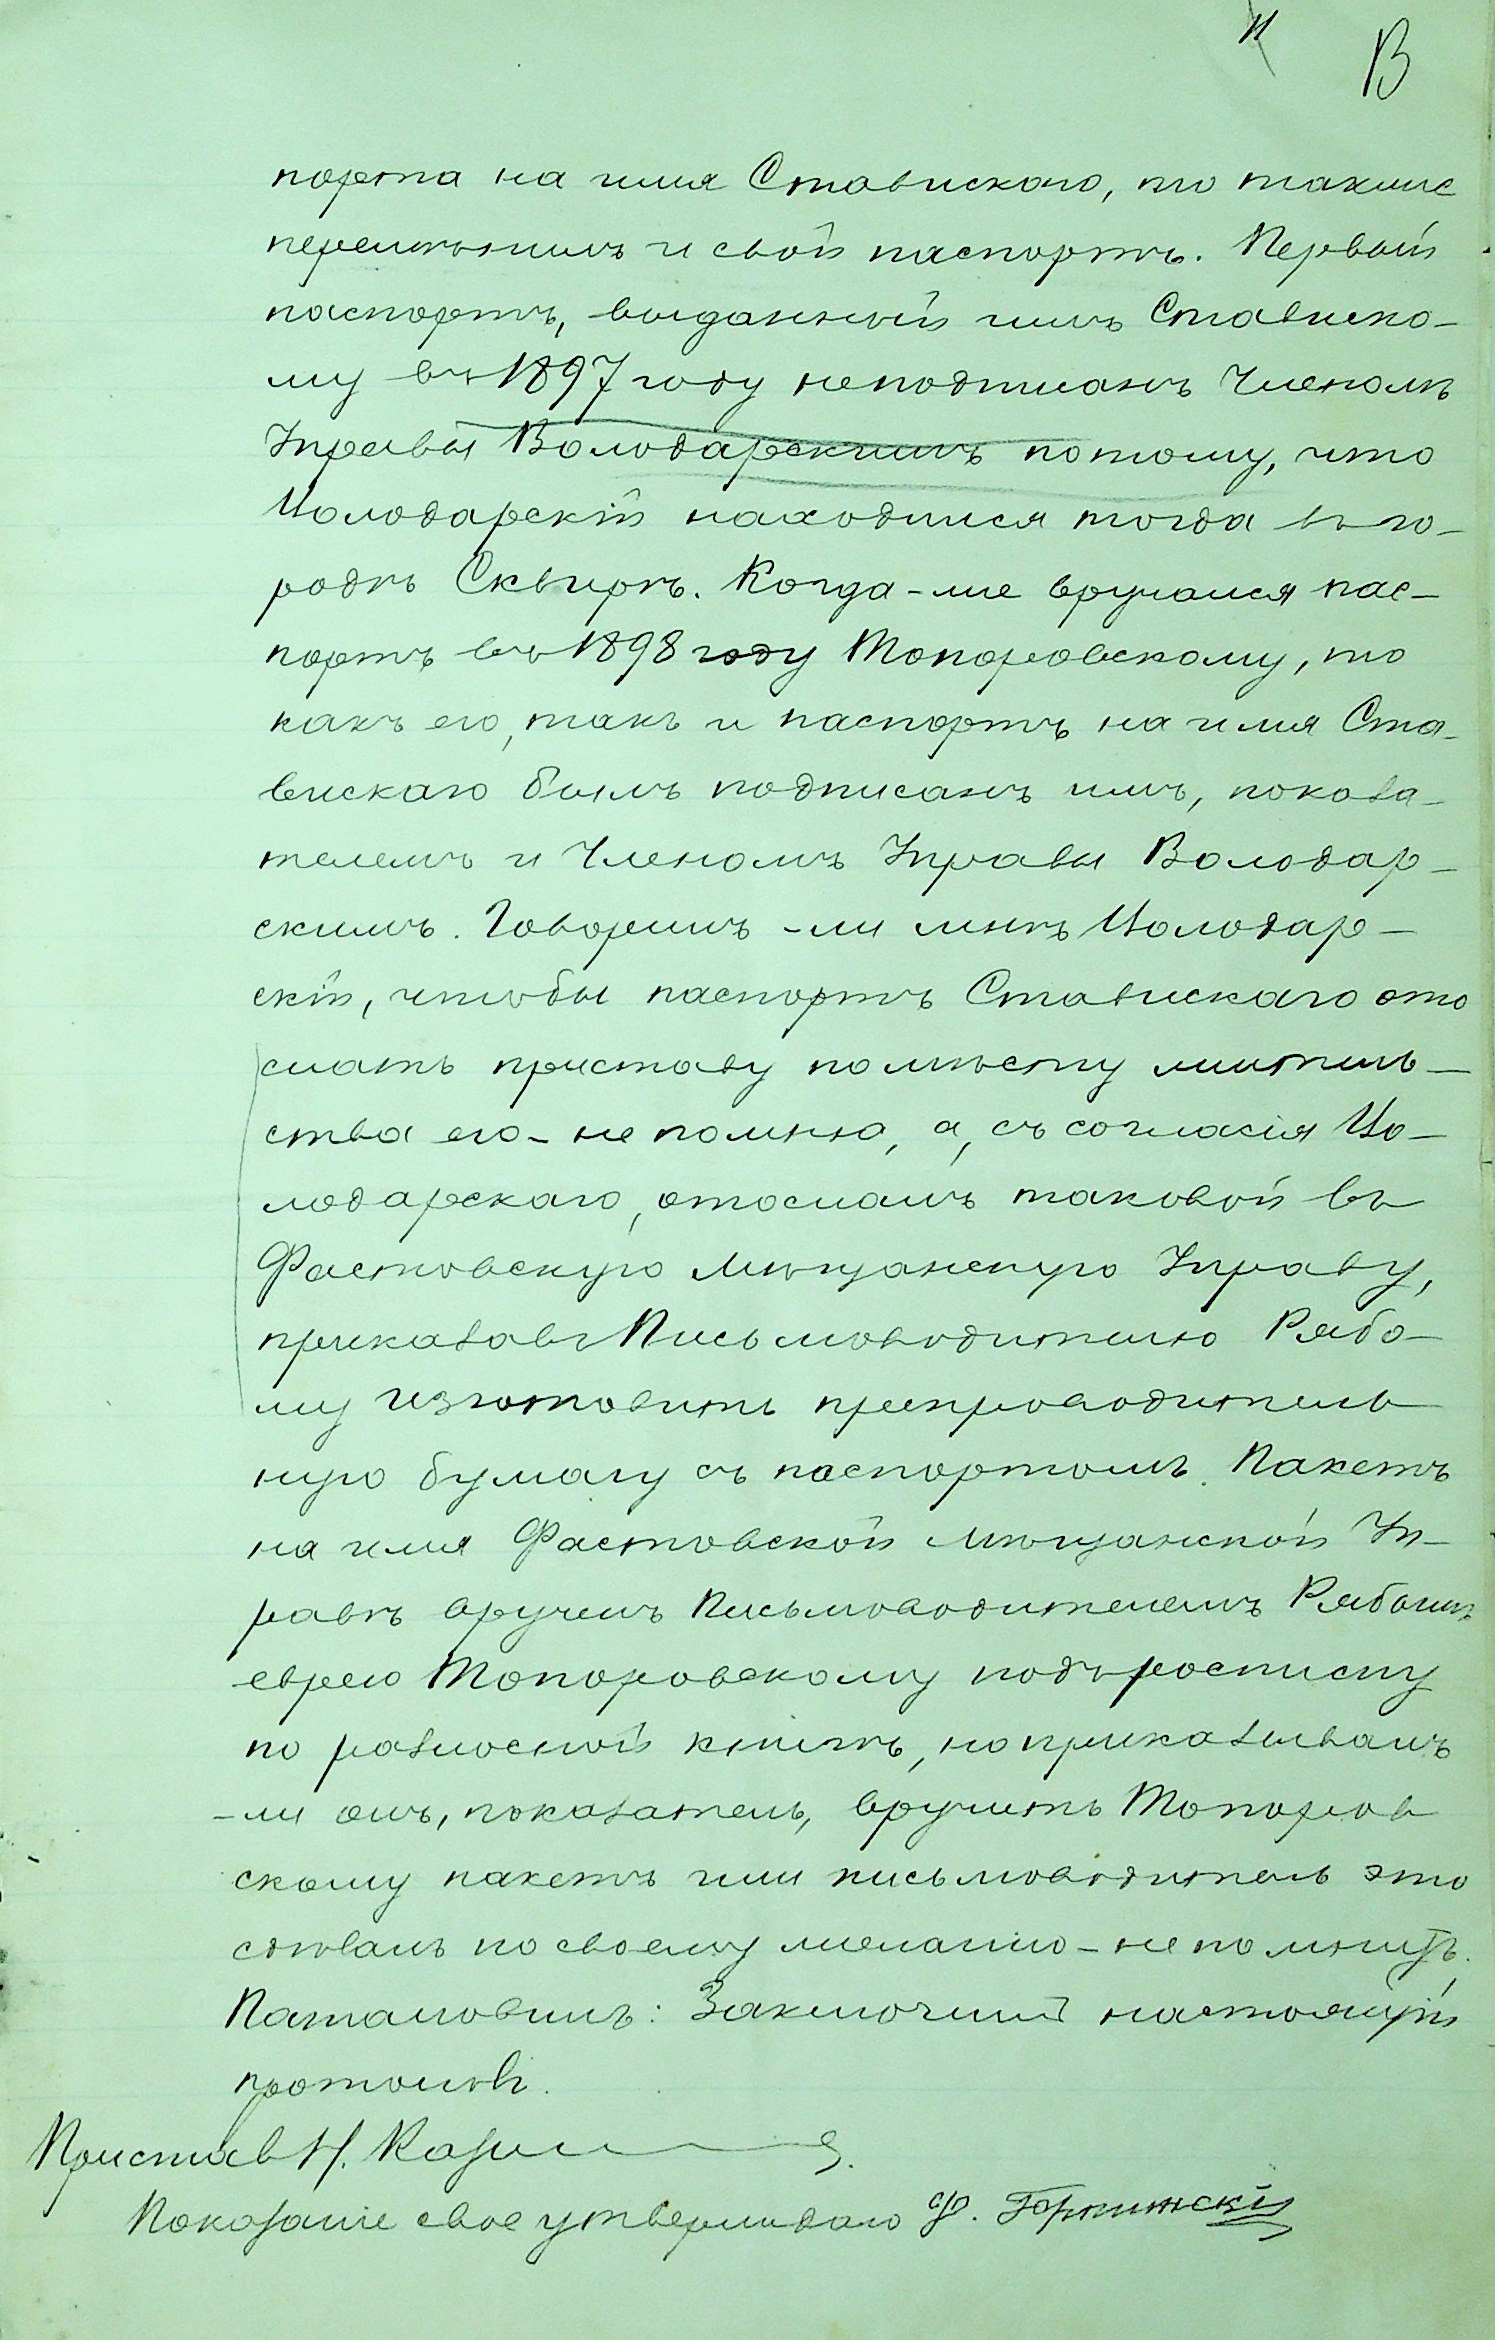 11 13
порта на имя Ставискаго, то также
перемѣнилъ и свой паспортъ. Первый
паспортъ, выданный имъ Стависко-
му въ 1897 году неподписанъ Членомъ
Управы Володарскимъ потому, что
Володарскій находился тогда въ го-
родѣ Сквирѣ. Когда-же вручался пас-
портъ въ 1898 году Топоровскому, то
какъ его, такъ и паспортъ на имя Ста-
вискаго былъ подписанъ имъ, показа-
телемъ и Членомъ Управы Володар-
скимъ. Говорилъ-ли мнѣ Володар-
скій, чтобы паспортъ Ставискаго ото
слать приставу по мѣсту житель-
ства его - не помню, а, съ согласія Во-
лодарскаго, отослалъ таковой въ
Фастовскую мѣщанскую Управу,
приказавъ Письмоводителю Рябо-
му изготовить препроводитель
ную бумагу съ паспортомъ. Пакетъ
на имя Фастовской мѣщанской Уп-
равѣ вручилъ Письмоводителемъ Рябымъ
еврею Топоровскому подъ росписку
по разносной книгѣ, но приказывалъ
-ли онъ, показатель, вручить Топоров
скому пакетъ или письмоводитель это
сдѣлалъ по своему желанію - не помнитъ.
Постановилъ: Заключить настоящій
протоколъ.
Приставъ Н.
Показаніе свое утверждаю Ф.